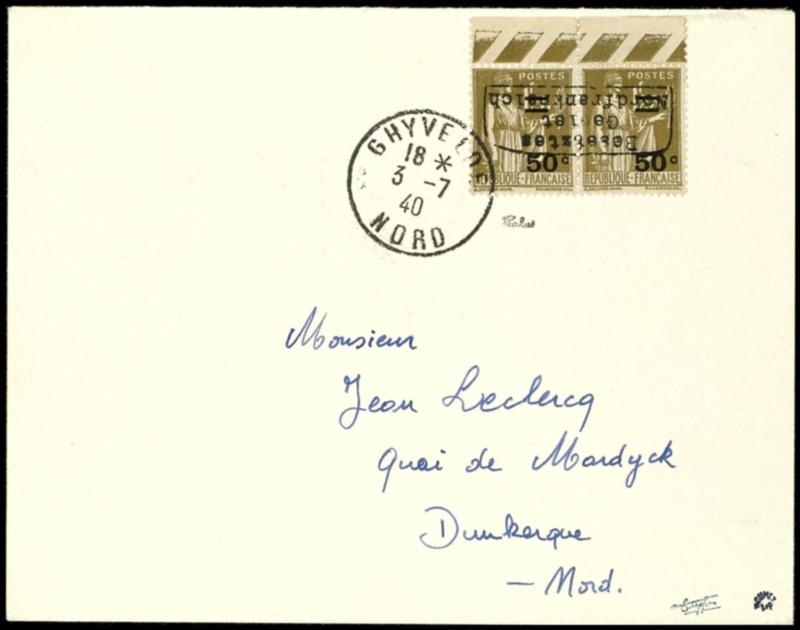 POSTES POSTES
Besetztes
Gebiet
Nordfrankreich
50c 50c
REPUBLIQUE-FRANCAISE REPUBLIQUE-FRANCAISE
GHYVELDE
18 *
3 -7
40
NORD
Monsieur
Jean Leclercq
Quai de Mardyck
Dunkerque
— Nord.